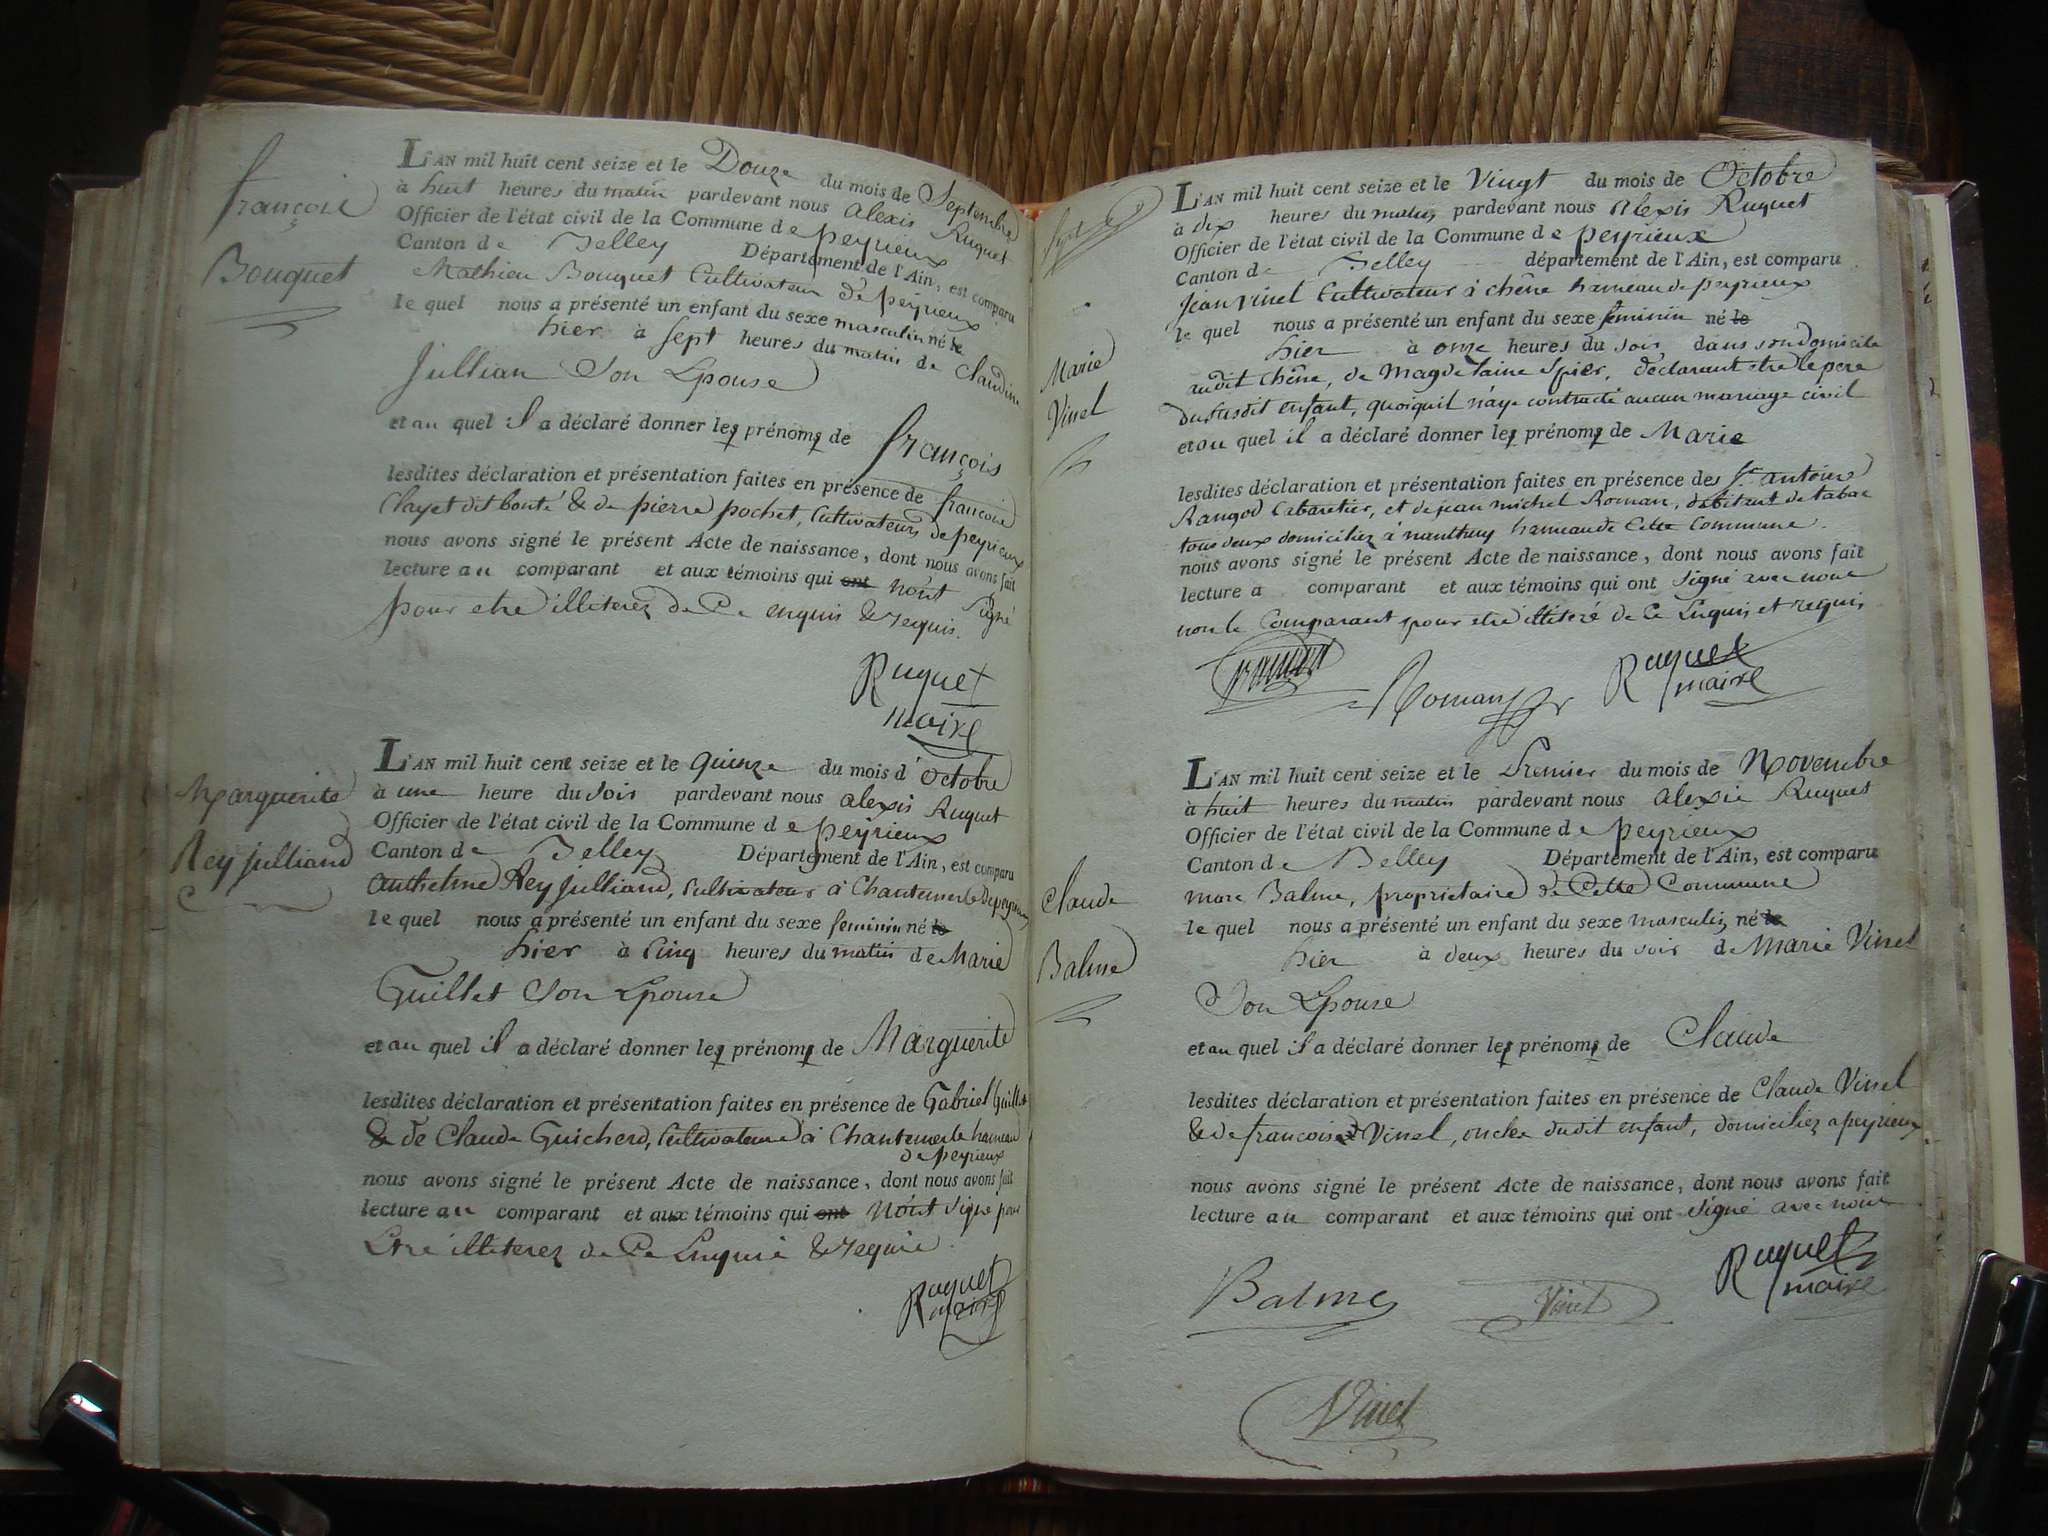 françois
Bouquet
L'AN mil huit cent seize et le Douze du mois de Septembre
à huit heures du matin pardevant nous alexis Ruguet
Officier de l'état civil de la Commune de peyrieux
Canton de Belley Département de l'Ain, est comparu
Mathieu Bouquet Cultivateur de peyrieux
le quel nous a présenté un enfant du sexe masculin né le
hier à sept heures du matin de Claudine
Jullian Son Epouse
et au quel il a déclaré donner les prénoms de françois
lesdites déclaration et présentation faites en présence de francois
Clayet dit bonté & de pierre pochet, Cultivateurs de peyrieux
nous avons signé le présent Acte de naissance, dont nous avons fait
lecture au comparant et aux témoins qui ont n'ont signé
pour etre illiterez de Ce enquis & requis.
Ruguet
maire
Marguerite
Rey Julliand
L'AN mil huit cent seize et le quinze du mois d'octobre
à une heure du soir pardevant nous alexis Ruguet
Officier de l'état civil de la Commune de peyrieux
Canton de Belley Département de l'Ain, est comparu
Anthelme Rey Julliand, cultivateur à Chantemerle de peyrieux
le quel nous a présenté un enfant du sexe feminin né le
hier à Cinq heures du matin de Marie
Guillet Son Epouse
et au quel il a déclaré donner les prénoms de Marguerite
lesdites déclaration et présentation faites en présence de Gabriel Guillet
& de Claude Guicherd, Cultivateurs à Chantemerle hameau
de peyrieux
nous avons signé le présent Acte de naissance, dont nous avons fait
lecture au comparant et aux témoins qui ont n'ont signé pour
Etre illiterez de Ce Enquis & requis.
Ruguet
maire
Marie
Vinel
L'AN mil huit cent seize et le Vingt du mois de Octobre
à dix heures du matin pardevant nous alexis Ruguet
Officier de l'état civil de la Commune de peyrieux
Canton de Belley département de l'Ain, est comparu
Jean Vinel Cultivateur à chêne hameau de peyrieux
le quel nous a présenté un enfant du sexe feminin né le
hier à onze heures du soir dans son domicile
audit Chêne, de Magdelaine Spier, déclarant etre le pere
du susdit enfant, quoiquil n'aye contracté aucun mariage civil
et au quel il a déclaré donner les prénoms de Marie
lesdites déclaration et présentation faites en présence des Sr. antoine
Rangod Cabaretier, et de jean michel Roman, débitant de tabac
tous deux domiciliez à nanthuy hameau de Cette Commune.
nous avons signé le présent Acte de naissance, dont nous avons fait
lecture a comparant et aux témoins qui ont signé avec nous
non le Comparant pour etre illiteré de Ce Enquis et requis
Roman
Ruguet
maire
Claude
Balme
L'AN mil huit cent seize et le Premier du mois de Novembre
à huit heures du matin pardevant nous alexis Ruguet
Officier de l'état civil de la Commune de peyrieux
Canton de Belley Département de l'Ain, est comparu
marc Balme, proprietaire de Cette Commune
le quel nous a présenté un enfant du sexe masculin né le
hier à deux heures du soir de Marie Vinel
Son Epouse
et au quel il a déclaré donner les prénoms de Claude
lesdites déclaration et présentation faites en présence de Claude Vinel
& de francois Vinel, oncles dudit enfant, domiciliez a peyrieux
nous avons signé le présent Acte de naissance, dont nous avons fait
lecture au comparant et aux témoins qui ont signé avec nous
Ruguet
maire
Balme
Vinel
Vinel